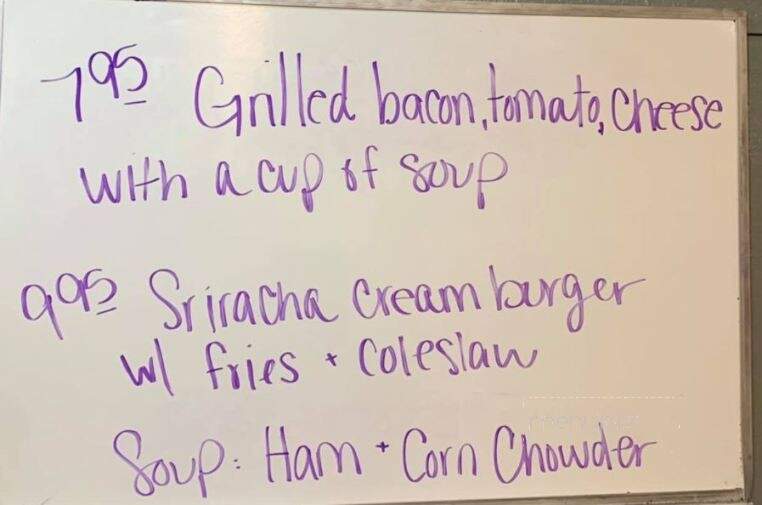 7 95 Grilled bacon, tomato, cheese
with a cup of soup
9 95 Sriracha cream burger
w/ fries + coleslaw
Soup: Ham + Corn Chowder